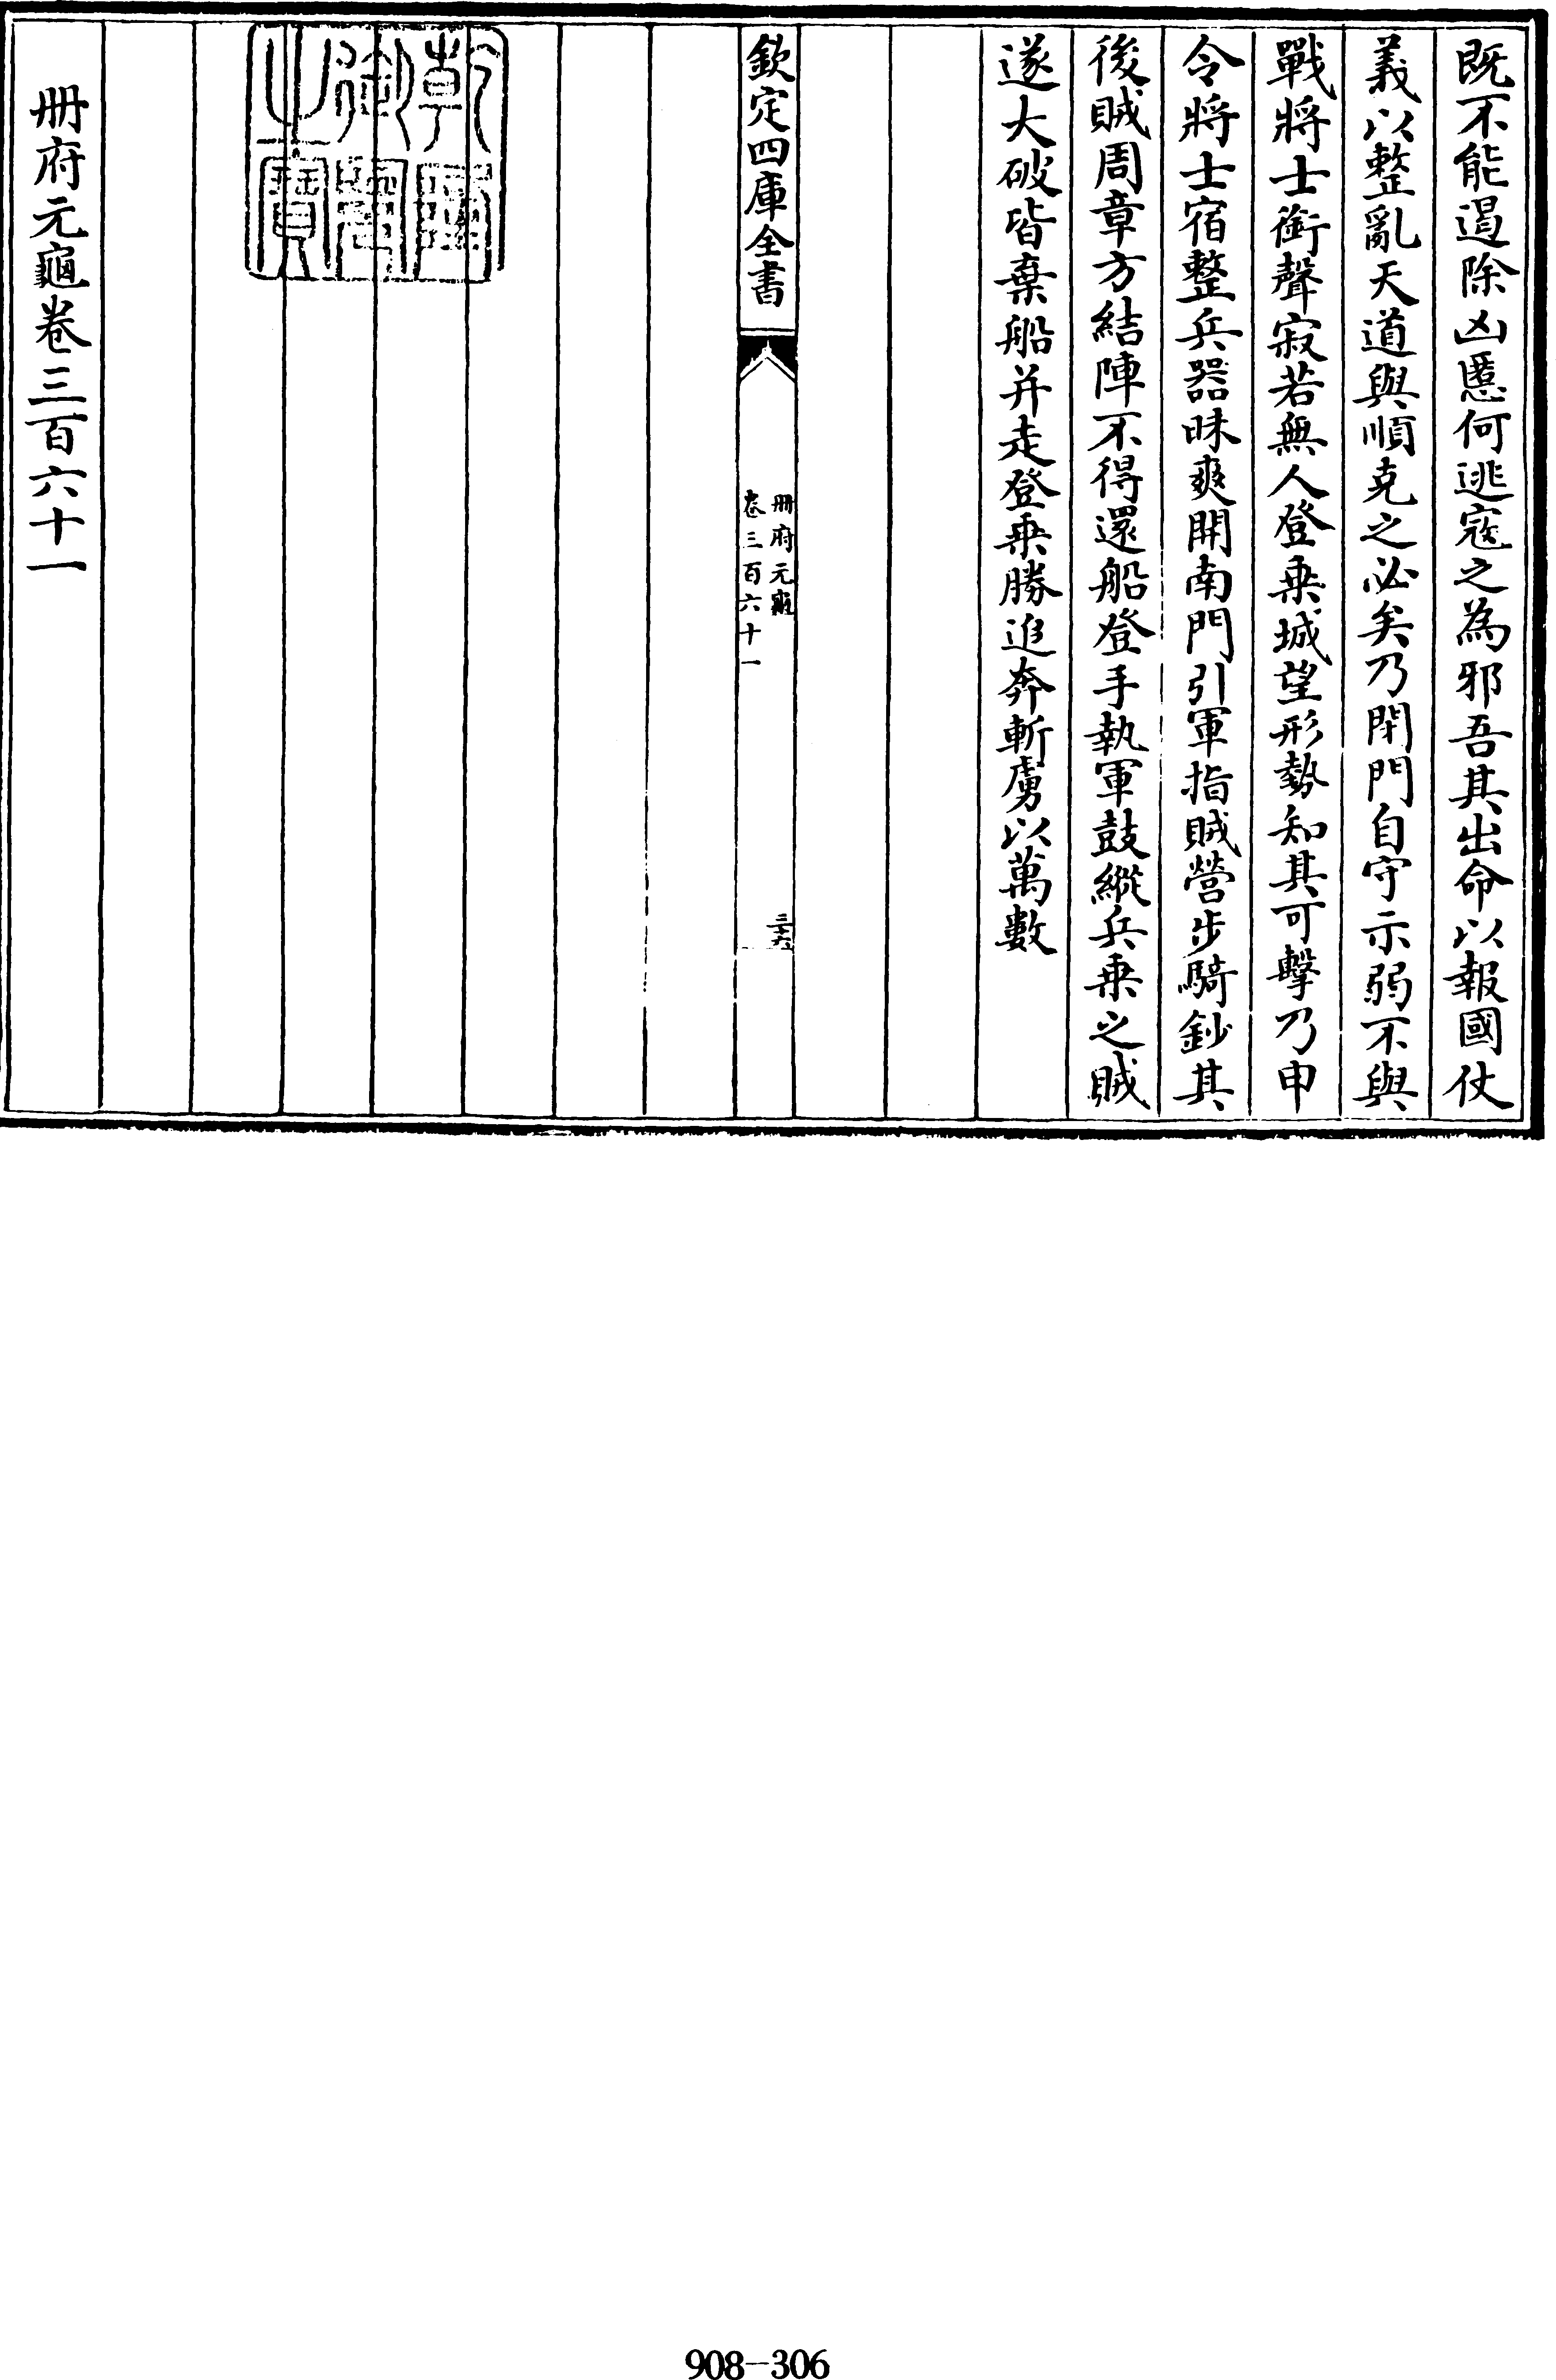 既不能遏除凶慝何逃寇之為邪吾其出命以報國仗
義以整亂天道與順克之必矣乃閉門自守示弱不與
戰將士銜聲寂若無人登乗城望形勢知其可擊乃申
令將士宿整兵器昧爽開南門引軍指賊營步騎鈔其
後賊周章方結陣不得還船登手執軍鼓縱兵乗之賊
遂大破皆棄船并走登乗勝追奔斬虜以萬數
欽定四庫全書
冊府元龜
卷三百六十一
三十六
乾隆
御覽
之寶
冊府元龜卷三百六十一
908-306